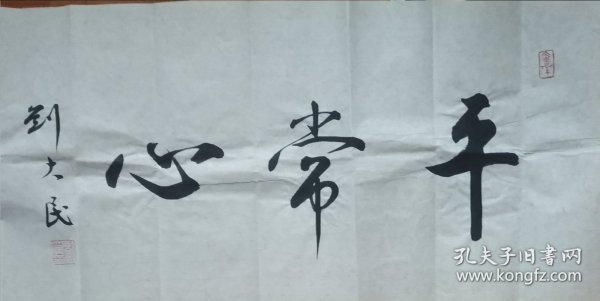 平常心
刘大民
孔夫子旧书网
www.kongfz.com